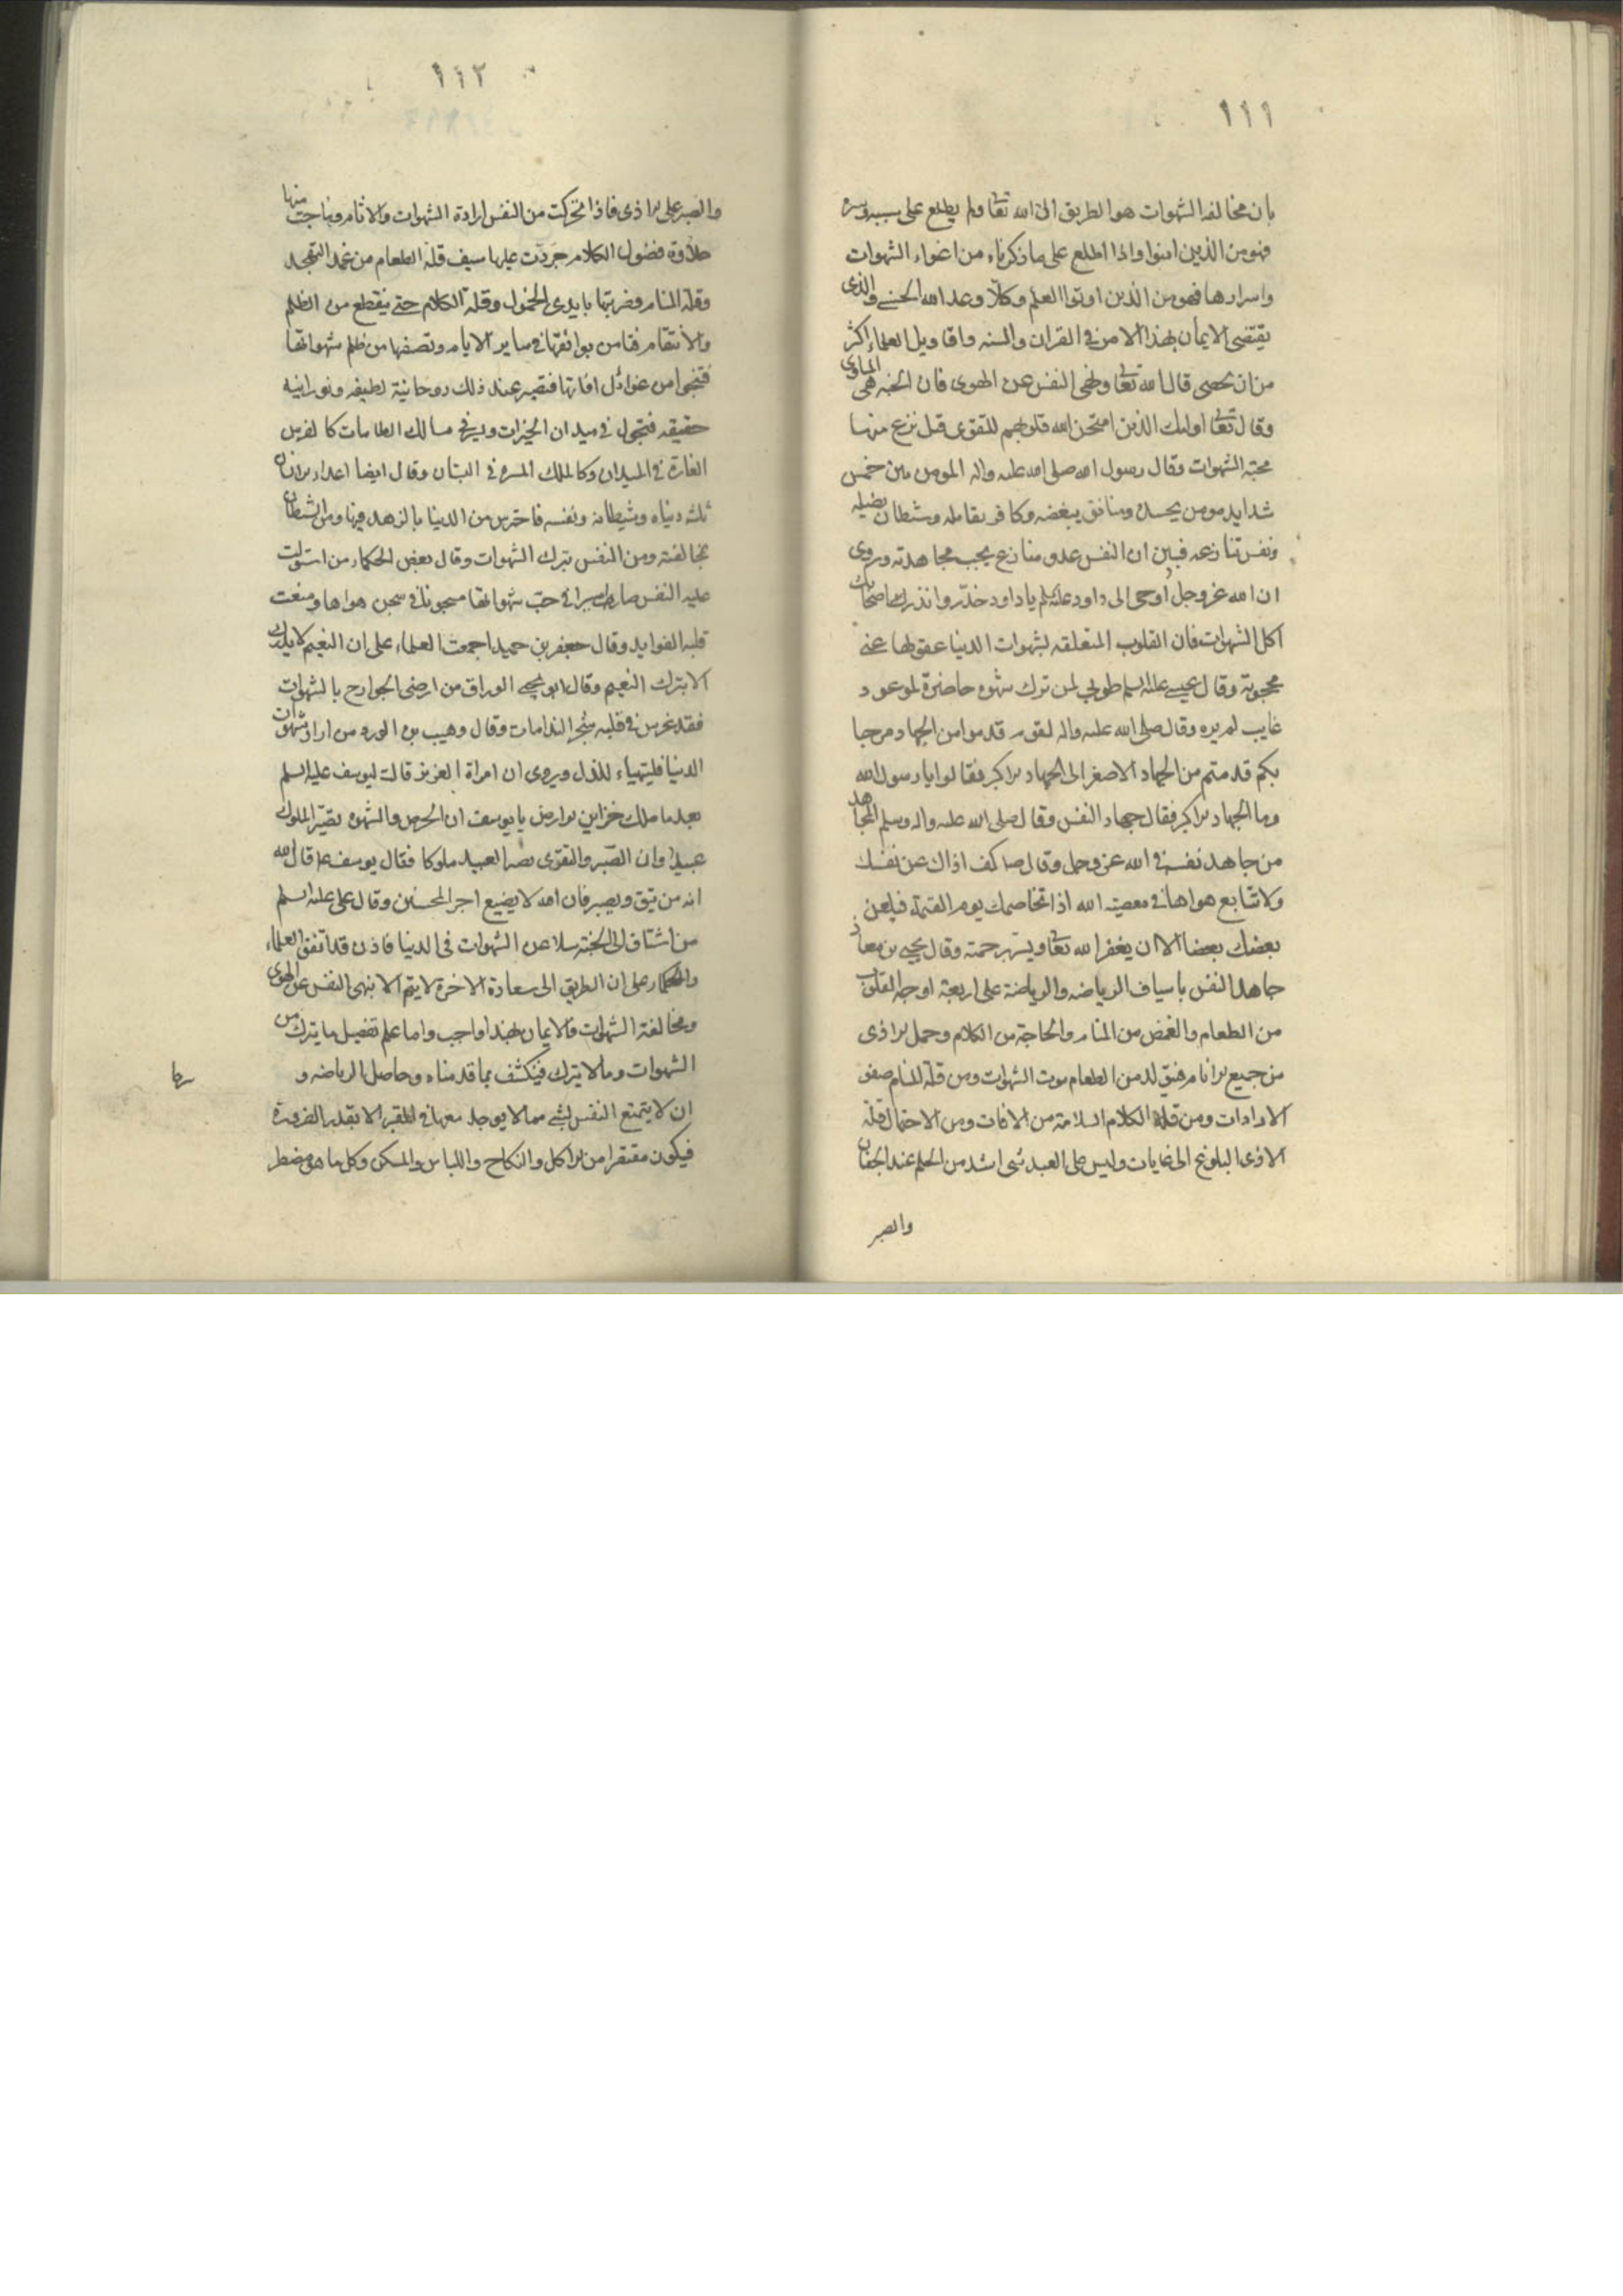 ١١١
بان مخالفه الشهوات هو الطريق الى الله تعا ولم يطلع على سببه وسره
فهو من الذين امنوا واذا اطلع على ما ذكرناه من اغواء الشهوات
واسرارها فهو من الذين اوتوا العلم وكلّا وعد الله الحسنى والذى
يقتضى الايمان بهذا الامر فى القران والسنه واقاويل العلماء اكثر
من ان يحصى قال الله تعا ونهى النفس عن الهوى فان الجنه هى الماوى
وقال تعا اولئك الذين امتحن الله قلوبهم للتقوى قيل نزع منها
محبة الشهوات وقال رسول الله صلى الله عليه واله المومن بين خمس
شدايد مومن يحسده ومنافق يبغضه وكافر يقاتله وشيطان يضله
ونفس تنازعه فبين ان النفس عدو منازع يجب مجاهدته ويروى
ان الله عز وجل اوحى الى داود عليه السلم يا داود حذّر وانذر اصحابك
اكل الشهوات فان القلوب المتعلقه بشهوات الدنيا عقولها عنى
محجوبة وقال عيسى عليه السلم طوبى لمن ترك شهوه حاضرة لموعود
غايب لم يره وقال صلى الله عليه واله لقوم قدموا من الجهاد مرحبا
بكم قدمتم من الجهاد الاصغر الى الجهاد الاكبر فقالوا يا رسول الله
وما الجهاد الاكبر فقال جهاد النفس وقال صلى الله عليه واله وسلم المجاهد
من جاهد نفسه فى الله عز وجل وقال صلى كف اذاك عن نفسك
ولا تتابع هواها فى معصية الله اذا تخاصمك يوم القيمة فيلعن
بعضك بعضا الا ان يغفر الله تعا ويستر برحمته وقال يحيى بن معاذ
جاهد النفس باسياف الرياضه والرياضة على اربعة اوجه القلوب
من الطعام والغمض من المنام والحاجة من الكلام وحمل الاذى
من جميع الانام فيتولد من الطعام موت الشهوات ومن قلة المنام صفو
الارادات ومن قلة الكلام السلامة من الافات ومن الاحتمال قلة
الاذى البلوغ الى الغايات وليس على العبد شى اشد من الحلم عند الجفا
والصبر
١١٢
والصبر على الاذى فاذا تحركت من النفس ارادة الشهوات والاثام وهاجت منها
حلاوة فضول الكلام جردت عليها سيف قلة الطعام من غمد التهجد
وقلة المنام وضربتها بايدى الخمول وقلة الكلام حتى ينقطع من الظلم
والانتقام فتامن بوائقها فى ساير الايام وتصفها من ظلم شهواتها
فتنجوا من غوائل افاتها فتصير عند ذلك روحانية لطيفه ونورانيه
خفيفه فتجول فى ميدان الخيرات ويسرح مسالك الطاعات كالفرس
الفارة فى الميدان وكالملك المتنزه فى البستان وقال ايضا اعداء الانسان
ثلثه دنياه وشيطانه ونفسه فاحترس من الدنيا بالزهد فيها ومن الشيطان
بمخالفته ومن النفس بترك الشهوات وقال بعض الحكماء من استولت
عليه النفس صار اسيرا فى حب شهواتها مسجونا فى سجن هواها ومنعت
قلبه الفوايد وقال جعفر بن حميد اجمعت العلماء على ان النعيم لا يدرك
الا بترك النعيم وقال ابو يحيى الوراق من ارضى الجوارح بالشهوات
فقد غرس فى قلبه شجر الندامات وقال وهيب بن الورد من اراد شهوات
الدنيا فليتهياء للذل ويروى ان امراة العزيز قالت ليوسف عليه السلم
بعد ما ملك خزاين الارض يا يوسف ان الحرص والشهوه تصيّر الملوك
عبيدا وان الصبر والتقوى يصير العبيد ملوكا فقال يوسف ع قال الله
انه من يتق ويصبر فان الله لا يضيع اجر المحسنين وقال على عليه السلم
من اشتاق الى الجنة سلا عن الشهوات فى الدنيا فاذن قد اتفق العلماء
والحكماء على ان الطريق الى سعادة الاخرة لا يتم الا بنهى النفس عن الهوى
ومخالفة الشهوات فالايمان بهذا واجب واما علم تفصيل ما يترك من
الشهوات وما لا يترك فينكشف بما قدمناه وحاصل الرياضه و
ان لا يتمتع النفس بشى مما لا يوجد معها فى القبر الا بقدر الضرورة
فيكون مقتصرا من الاكل والنكاح واللباس والمسكن وكل ما هو مضطر